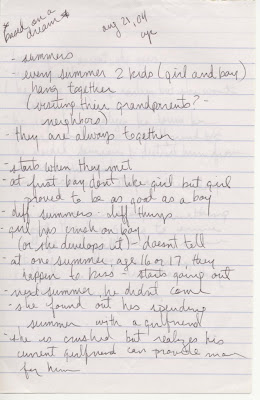 *based on a
dream*
aug 21, 04
- summers
- every summer 2 kids (girl and boy)
hang together
(visiting their grandparents? -
neighbors)
- they are always together
- starts when they met
- at first boy dont like girl but girl
proved to be as good as a boy
- diff summers - diff things
- girl has crush on boy
(or she develops it) - doesn't tell
- at one summer, age 16 or 17, they
happen to kiss - starts going out
- next summer, he didn't come
- she found out he's spending
summer with a girlfriend
- she is crushed but realizes his
current girlfriend can provide more
for him